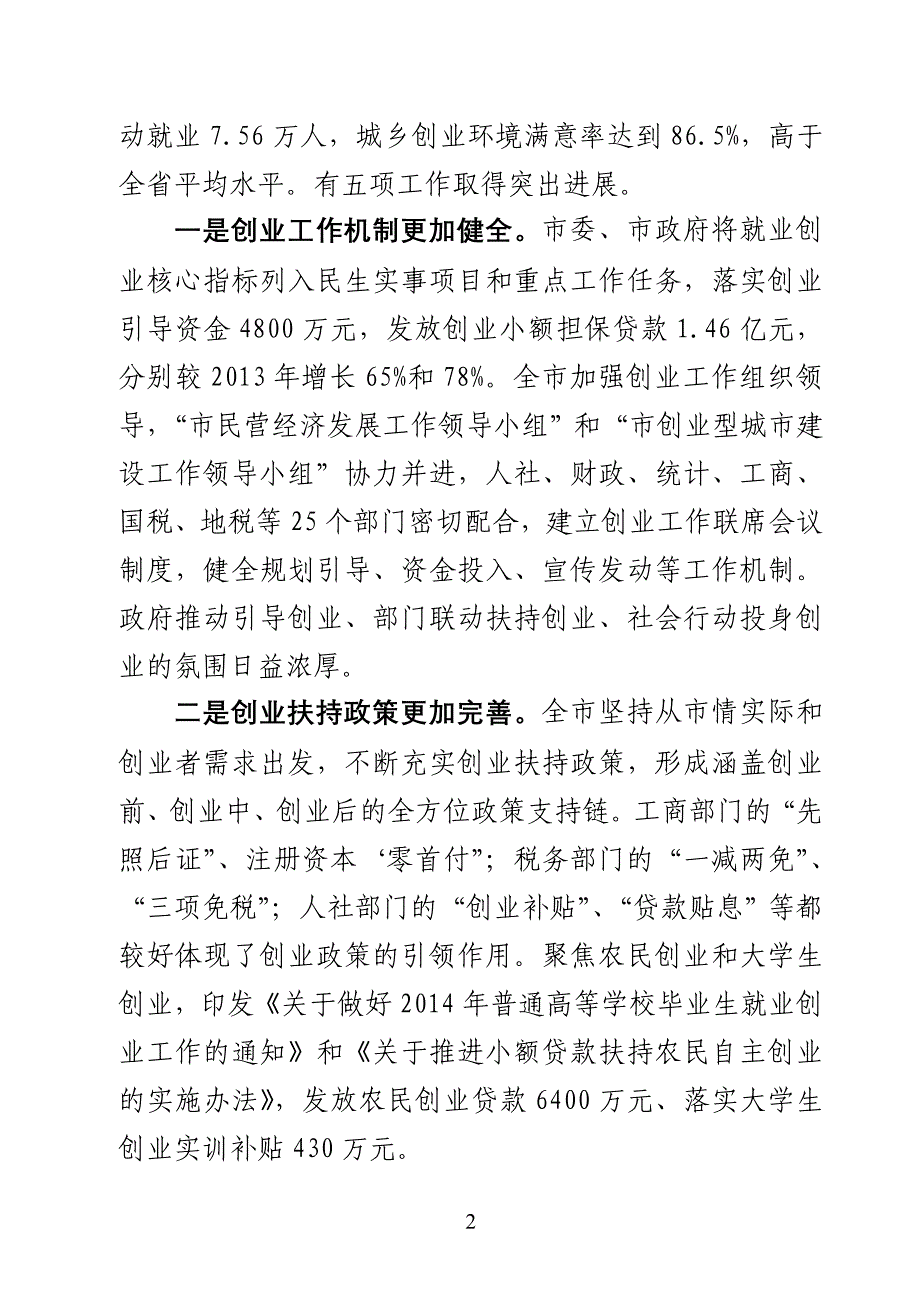 动就业 7.56 万人，城乡创业环境满意率达到 86.5%，高于
全省平均水平。有五项工作取得突出进展。
一是创业工作机制更加健全。市委、市政府将就业创
业核心指标列入民生实事项目和重点工作任务，落实创业
引导资金 4800 万元，发放创业小额担保贷款 1.46 亿元，
分别较 2013 年增长 65%和 78%。全市加强创业工作组织领
导，“市民营经济发展工作领导小组”和“市创业型城市建
设工作领导小组”协力并进，人社、财政、统计、工商、
国税、地税等 25 个部门密切配合，建立创业工作联席会议
制度，健全规划引导、资金投入、宣传发动等工作机制。
政府推动引导创业、部门联动扶持创业、社会行动投身创
业的氛围日益浓厚。
二是创业扶持政策更加完善。全市坚持从市情实际和
创业者需求出发，不断充实创业扶持政策，形成涵盖创业
前、创业中、创业后的全方位政策支持链。工商部门的“先
照后证”、注册资本‘零首付”；税务部门的“一减两免”、
“三项免税”；人社部门的“创业补贴”、“贷款贴息”等都
较好体现了创业政策的引领作用。聚焦农民创业和大学生
创业，印发《关于做好 2014 年普通高等学校毕业生就业创
业工作的通知》和《关于推进小额贷款扶持农民自主创业
的实施办法》，发放农民创业贷款 6400 万元、落实大学生
创业实训补贴 430 万元。
2